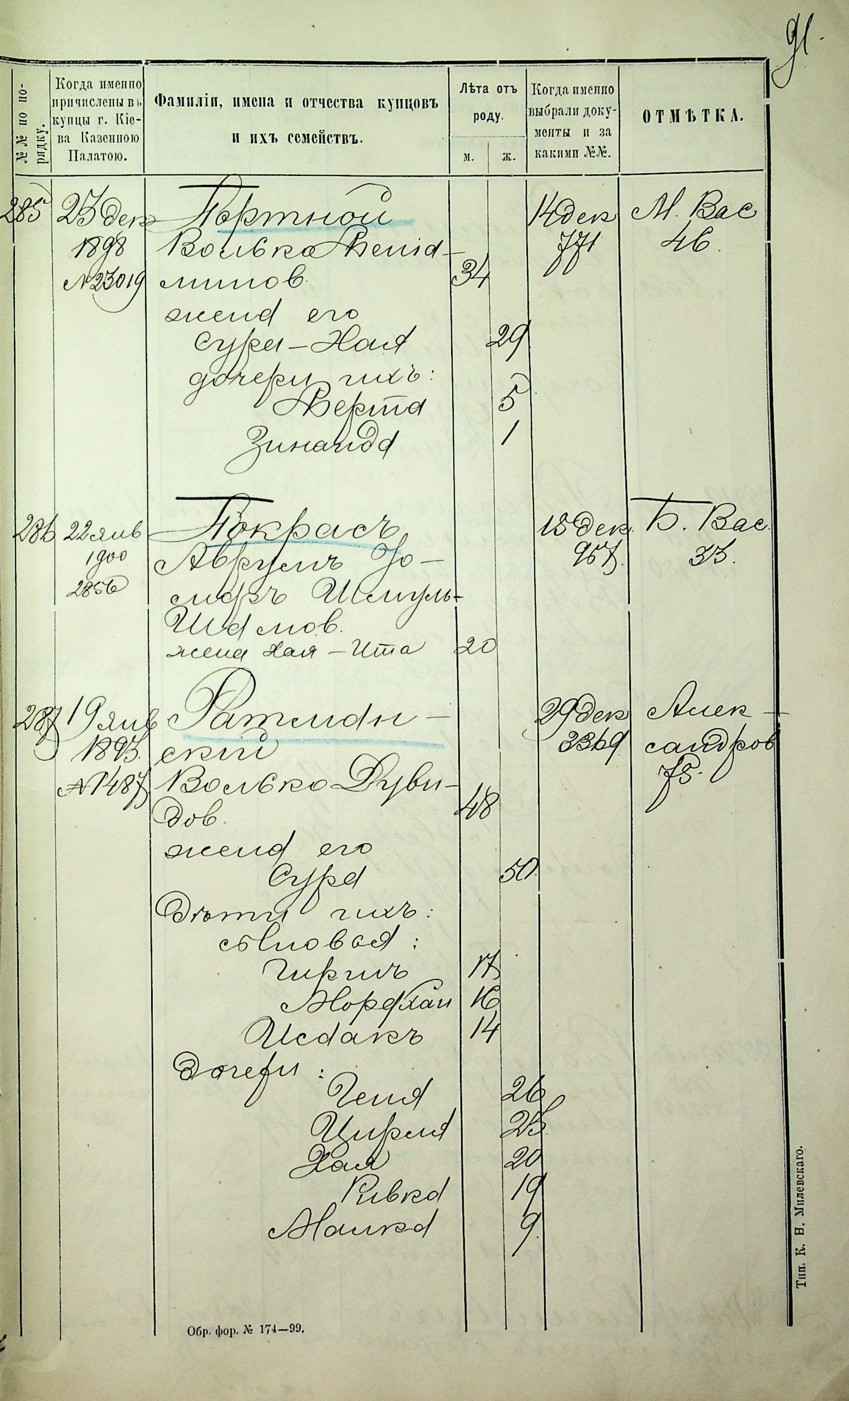 91.
№№ по по-
рядку.
Когда именно
причислены въ
купцы г. Кіе-
ва Казенною
Палатою.
Фамиліи, имена и отчества купцовъ
и ихъ семействъ.
Лѣта отъ
роду.
м.
ж.
Когда именно
выбрали доку-
менты и за
какими №№.
ОТМѢТКА.
285 23 дек Портной 14 дек М. Вас
1898 Волько Веніа- 771 46.
№ 23019 минов. 34
жена его
Сура-Хая 29
дочери ихъ:
Берта 5
Зинаида 1
286 22 янв Покрасъ 15 дек Б. Вас.
1900 Аврумъ Іо- 957. 33.
2856 сифъ Шмуль-
Шамов.
жена Хая-Ита 20
287 19 янв Ратман- 29 дек Алек-
1893. скій 3369 сандров
№ 1487 Волько Дуви- 75.
дов. 48
жена его
Сура 50
Дѣти ихъ:
сыновья:
17
Мордхай 16
Исаакъ 14
Дочери:
Геня 26
Цирля 23
Хая 20
Ривка 19
Малка 9
Обр. фор. № 174—99.
Тип. К. Н. Милевскаго.